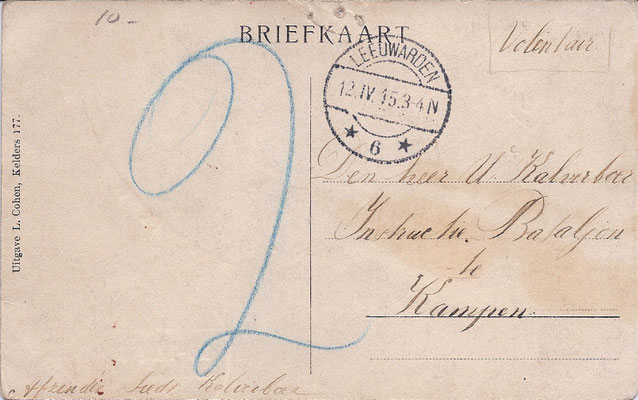 10.-
BRIEFKAART
Volontair
LEEUWARDEN
12.IV.15.3-4N
6
Uitgave L. Cohen, Kelders 177.
2
Den heer U. Kalverboer
Instructie. Bataljon
te
Kampen.
Kalverboer